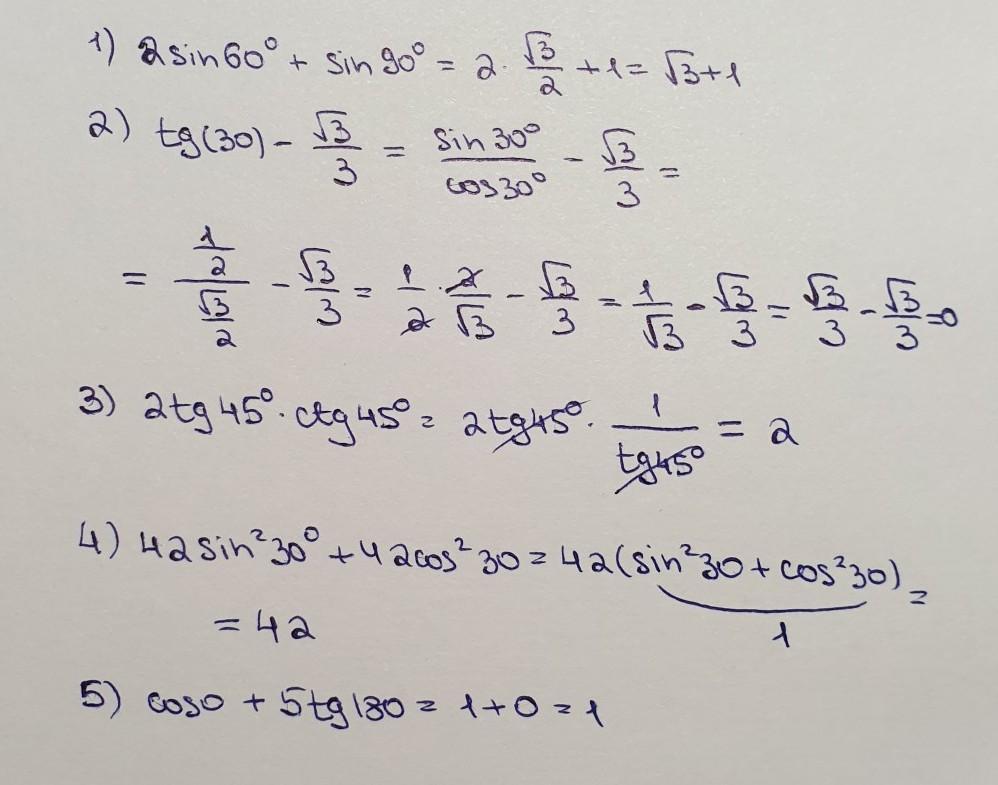 1) 2sin60° + sin90° = 2 · √3/2 + 1 = √3+1
2) tg(30) - √3/3 = sin30°/cos30° - √3/3 =
= (1/2)/(√3/2) - √3/3 = 1/2 · 2/√3 - √3/3 = 1/√3 - √3/3 = √3/3 - √3/3 = 0
3) 2tg45° · ctg45° = 2tg45° · 1/tg45° = 2
4) 42sin²30° + 42cos²30 = 42(sin²30 + cos²30) =
1
= 42
5) cos0 + 5tg180 = 1+0 = 1